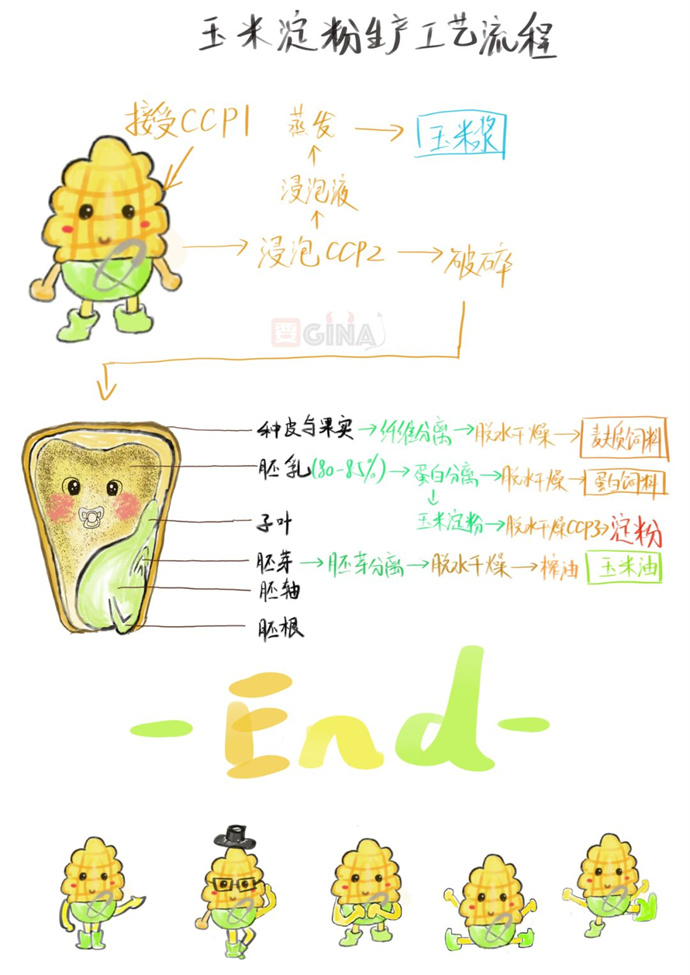 玉米淀粉生产工艺流程
接受CCP1 蒸发 → 玉米浆
↑
浸泡液
↑
→ 浸泡CCP2 → 破碎
GINA
种皮与果实→纤维分离→脱水干燥→麸质饲料
胚乳(80-85%)→蛋白分离→脱水干燥→蛋白饲料
↓
子叶 玉米淀粉→脱水干燥CCP3→淀粉
胚芽→胚芽分离→脱水干燥→榨油 玉米油
胚轴
胚根
-End-